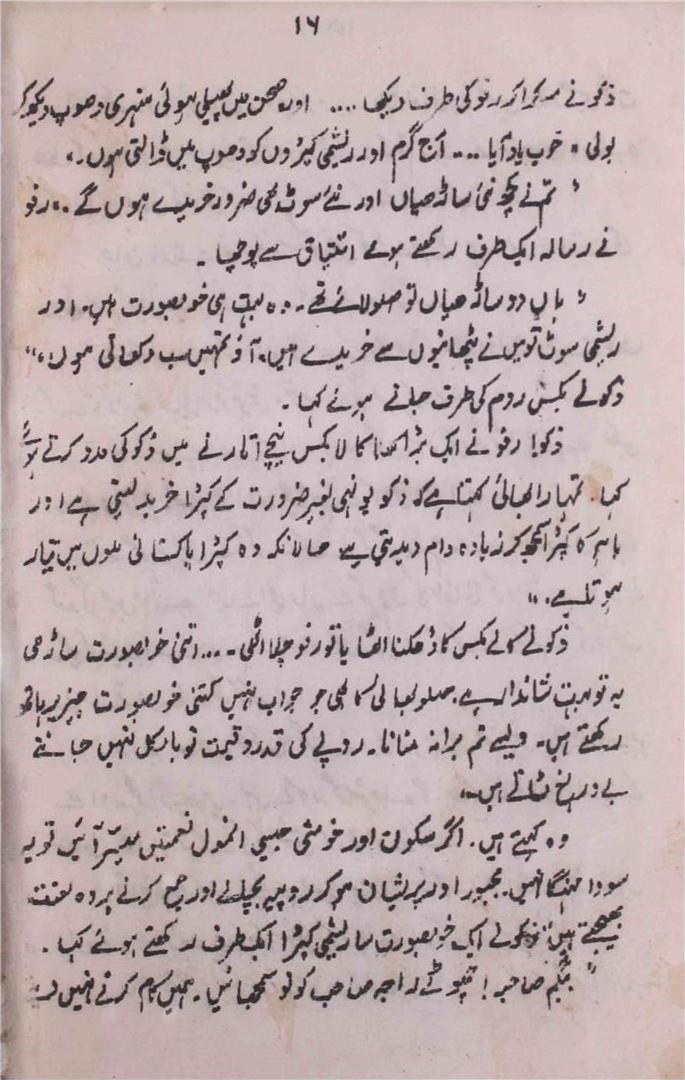 ۱۶
ذکو نے مسکرا کر رفو کی طرف دیکھا .... اور صحن میں پھیلی ہوئی سنہری دھوپ دیکھ کر
بولی " خوب یاد آیا .... آج گرم اور ریشمی کپڑوں کو دھوپ میں ڈالتی ہوں۔"
" تم نے کچھ نئی ساڑھیاں اور نئے سوٹ بھی ضرور خریدے ہوں گے ۔" رفو
نے رسالہ ایک طرف رکھتے ہوئے اشتیاق سے پوچھا ۔
" ہاں دو ساڑھیاں تو صلو لائے تھے ۔ وہ بہت ہی خوبصورت ہیں۔ اور
ریشمی سوٹ تو میں نے پٹھانیوں سے خریدے ہیں۔ آؤ تمہیں سب دکھاتی ہوں"،
ذکو نے بکس روم کی طرف جاتے ہوئے کہا ۔
ذکو! رفو نے ایک بڑا کالا بکس نیچے اتارنے میں ذکو کی مدد کرتے ہوئے
کہا۔ تمہارا بھائی کہتا ہے کہ ذکو یونہی بغیر ضرورت کے کپڑا خرید لیتی ہے اور
باہر کا کپڑا سمجھ کر زیادہ دام دیدیتی ہے حالانکہ وہ کپڑا پاکستانی ملوں میں تیار
ہوتا ہے ۔"
ذکو نے کالے بکس کا ڈھکنا اٹھایا تو رفو چلا اٹھی ۔... اتنی خوبصورت ساڑھی
یہ تو بہت شاندار ہے۔ صلو بھائی کا بھی جواب نہیں کتنی خوبصورت چیز پر ہاتھ
رکھتے ہیں۔ ویسے تم برا نہ منانا۔ روپے کی قدر و قیمت تو بالکل نہیں جانتے
بے دریغ لٹاتے ہیں۔"
وہ کہتے ہیں۔ اگر سکون اور خوشی جیسی انمول نعمتیں میسّر آئیں تو یہ
سودا مہنگا نہیں۔ مجبور اور پریشان ہو کر روپیہ بچانے اور جمع کرنے پر وہ لعنت
بھیجتے ہیں" ذکو نے ایک خوبصورت سا ریشمی کپڑا ایک طرف رکھتے ہوئے کہا ۔
" بیگم صاحبہ! ٹیپو تے راجہ صاحب کو تو سمجھائیں۔ ہمیں کام کرنے نہیں